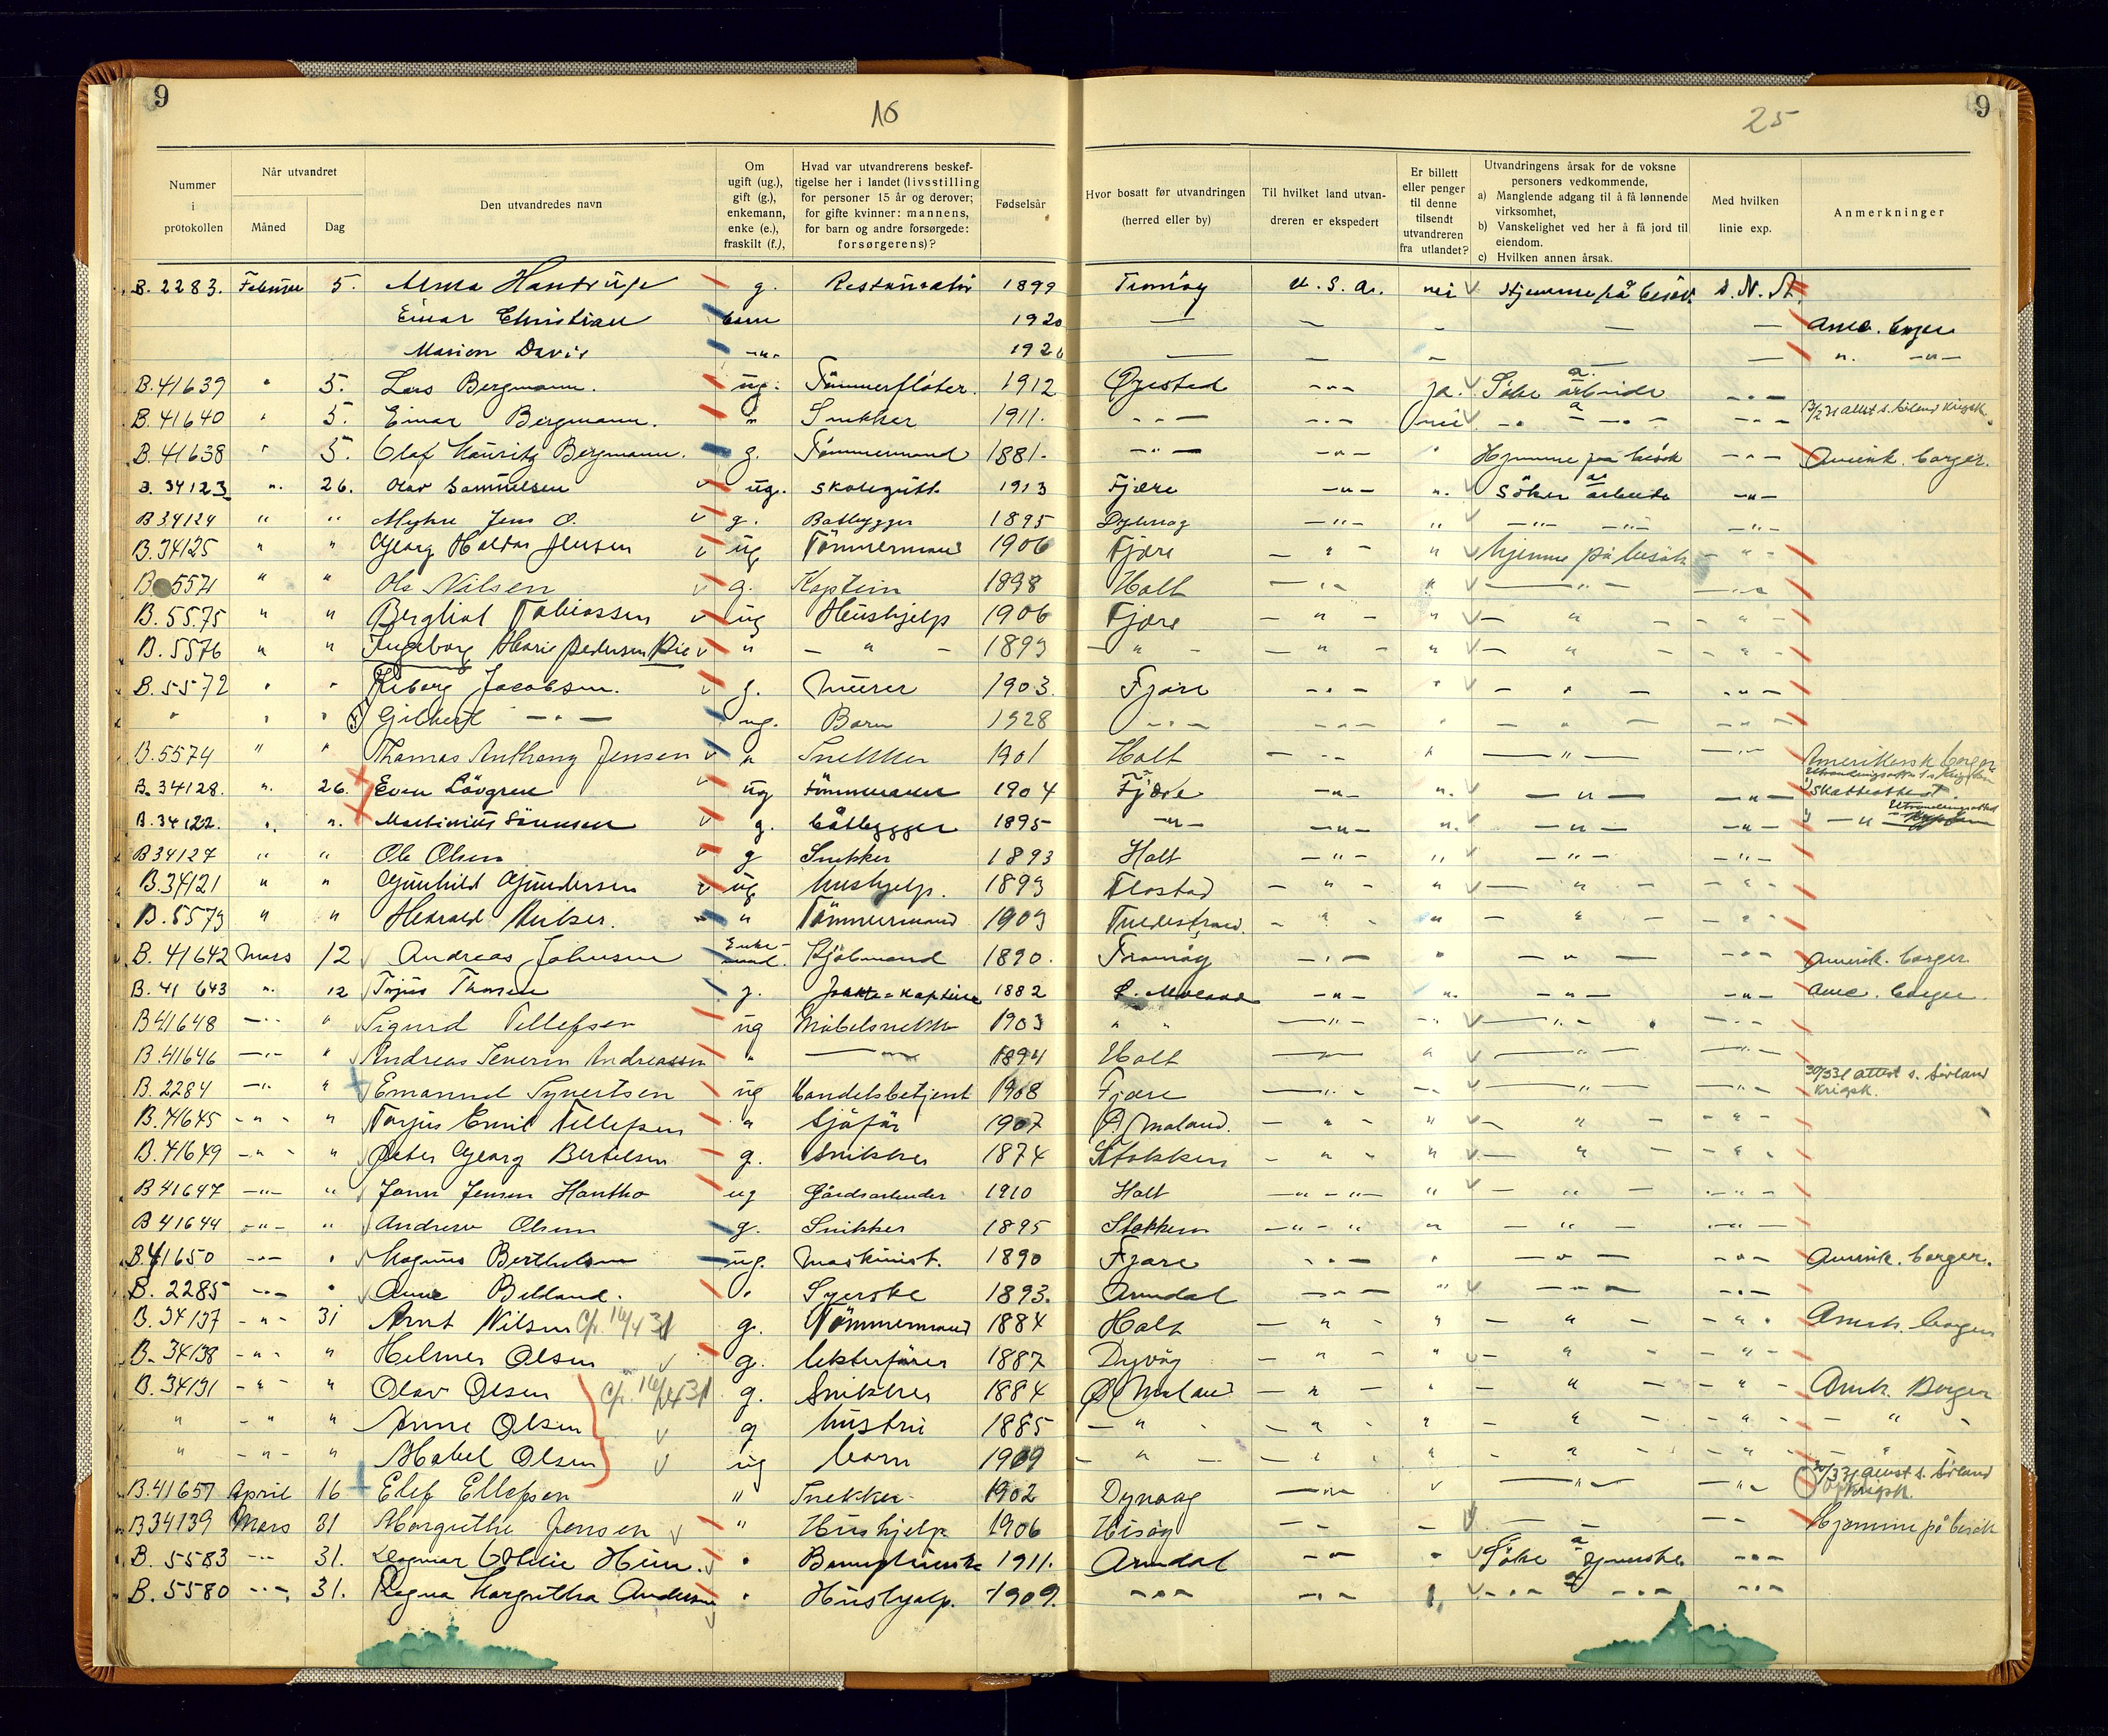 9
16
25
9
Nummer i protokollen
Når utvandret
Måned
Dag
Den utvandredes navn
Om ugift (ug.), gift (g.), enkemann, enke (e.), fraskilt (f.),
Hvad var utvandrerens beskeftigelse her i landet (livsstilling for personer 15 år og derover; for gifte kvinner: mannens, for barn og andre forsørgede: forsørgerens)?
Fødselsår
Hvor bosatt før utvandringen (herred eller by)
Til hvilket land utvandreren er ekspedert
Er billett eller penger til denne tilsendt utvandreren fra utlandet?
Utvandringens årsak for de voksne personers vedkommende,
a) Manglende adgang til å få lønnende virksomhet,
b) Vanskelighet ved her å få jord til eiendom.
c) Hvilken annen årsak.
Med hvilken linie exp.
Anmerkninger
B. 2283. Februar 5. g. 1899 Tromöy U. S. A. nei Hjemme på besök
Einar Christian barn 1920 — — — — — Ame. borger
Marion Davis -"- — — — — — " -"-
B. 41639 " 5. Lars Bergmann. ug. Tömmerflöter. 1912 Öyestad -"- ja. Söke arbeide -"-
B. 41640 " 5. Einar Bergmann. " Snekker 1911. -"- -"- nei -"- -"- -"-
B. 41638 " 5. Olaf Mauritz Bergmann. g. Tömmermand 1881. -"- -"- " Hjemme på besök -"- Amerik. borger.
B. 34123 " 26. Olav Samuelsen ug. skolegutt 1913 Fjære -"- " söker arbeide -"-
B 34124 " " Myhre Jens O. g. Båtbygger 1895 -"- " -"- -"- -"-
B. 34125 " " Georg Jensen ug Tömmermand 1906 Fjære -"- " hjemme på besök -"-
B 5571 " " Ole Nilsen g. Kaptein 1898 Holt -"- " -"- -"-
B. 5575 " " Bergliot Tobiassen ug Hushjelp 1906 Fjære -"- " -"- -"-
B. 5576 " " Ingeborg Marie Pedersen " -"- 1893 -"- -"- " -"- -"-
B. 5572 " " Jacobsen. g. Murer 1903. Fjære -"- " -"- -"-
" " " Gilbert -"- ug. Barn 1928 -"- -"- " -"- -"-
B. 5574 " " Thomas Anthony Jensen " Snekker 1901 Holt -"- " -"- -"- Amerikansk borger
B. 34128. " 26. Even Lövgren ug Tömmermann 1904 Fjære -"- " -"- -"- Skatteattest.
B. 34122. " " Martinius Sörensen g. båtbygger 1895 -"- -"- " -"- -"-
B 34127 " " Ole Olsen g Snekker 1893 Holt -"- " -"- -"-
B. 34121 " " Gunhild Gundersen ug hushjelp. 1893 Flostad -"- " -"- -"-
B. 5573 " " Harald " Tömmermand 1903 Tvedestrand. -"- " -"- -"-
B. 41642 Mars 12 Andreas Johnsen Enkemand. Sjömand 1890. Tromöy -"- " -"- -"- Amerik. borger.
B. 41 643 " 12 Thorsen g. 1882 -"- " -"- -"- Ame. borger.
B 41648 -"- " Sigurd Tellefsen ug Möbelsnekk 1903 " " -"- -"- -"- -"-
B. 41646 -"- " Andreas Severin Andreassen " — 1894 Holt — " -"- -"-
B. 2284 -"- " Emanuel Syvertsen ug Handelsbetjent 1908 Fjære -"- -"- -"- -"- 30/3 31 attest s. Sörland Krigsk.
B. 41645 -"- " Torjus Emil Tellefsen " Sjöfår 1907 Ö. Moland. -"- " -"- -"-
B. 41649 -"- " Peter Georg Bertelsen g. Snikker 1874 Stokken -"- " -"- -"-
B 41647 -"- " Jens Jensen Hantho ug Gårdsarbeider 1910 Holt -"- " -"- -"-
B 41644 -"- " Andrew Olsen g. Snikker 1895 Stokken -"- " -"- -"-
B. 41650 -"- " Magnus Berthelsen ug. Maskinist. 1890 Fjære -"- " -"- -"- Amerik. borger.
B. 2285 -"- " Anne Beldand. " Syerske 1893. Arendal -"- " -"- -"-
B. 34137 -"- 31 Arnt Nilsen 14/4 31 g. Tömmermand 1884 Holt -"- " -"- -"- Amrk. borger
B. 34138 -"- " Helmer Olsen g. lekterförer 1887 Dypvåg -"- " -"- -"-
B. 34131 -"- " Olav Olsen 16/4 31 g. Snikker 1884 Ö Moland -"- " -"- -"- Amk. Borger
" -"- " Anne Olsen g hustru 1885 -"- -"- " -"- -"- -"-
" -"- " Mabel Olsen ug barn 1909 -"- -"- " -"- -"- "
B. 41657 April 16 Elef Ellefsen " Snekker 1902 Dypvaag -"- " -"- -"- attest s. Sörland Krigsk.
B 34139 Mars 31 Margrethe Jensen " Hushjelp 1906 Hisöy -"- — -"- -"- Hjemme på besök
B. 5583 -"- 31. Dagmar Othilie " 1911. Arendal -"- " Söke tjeneste -"-
B. 5580 -"- 31. Ragna Margretha Andersen " Hushjelp. 1909. -"- -"- -"- -"- -"-